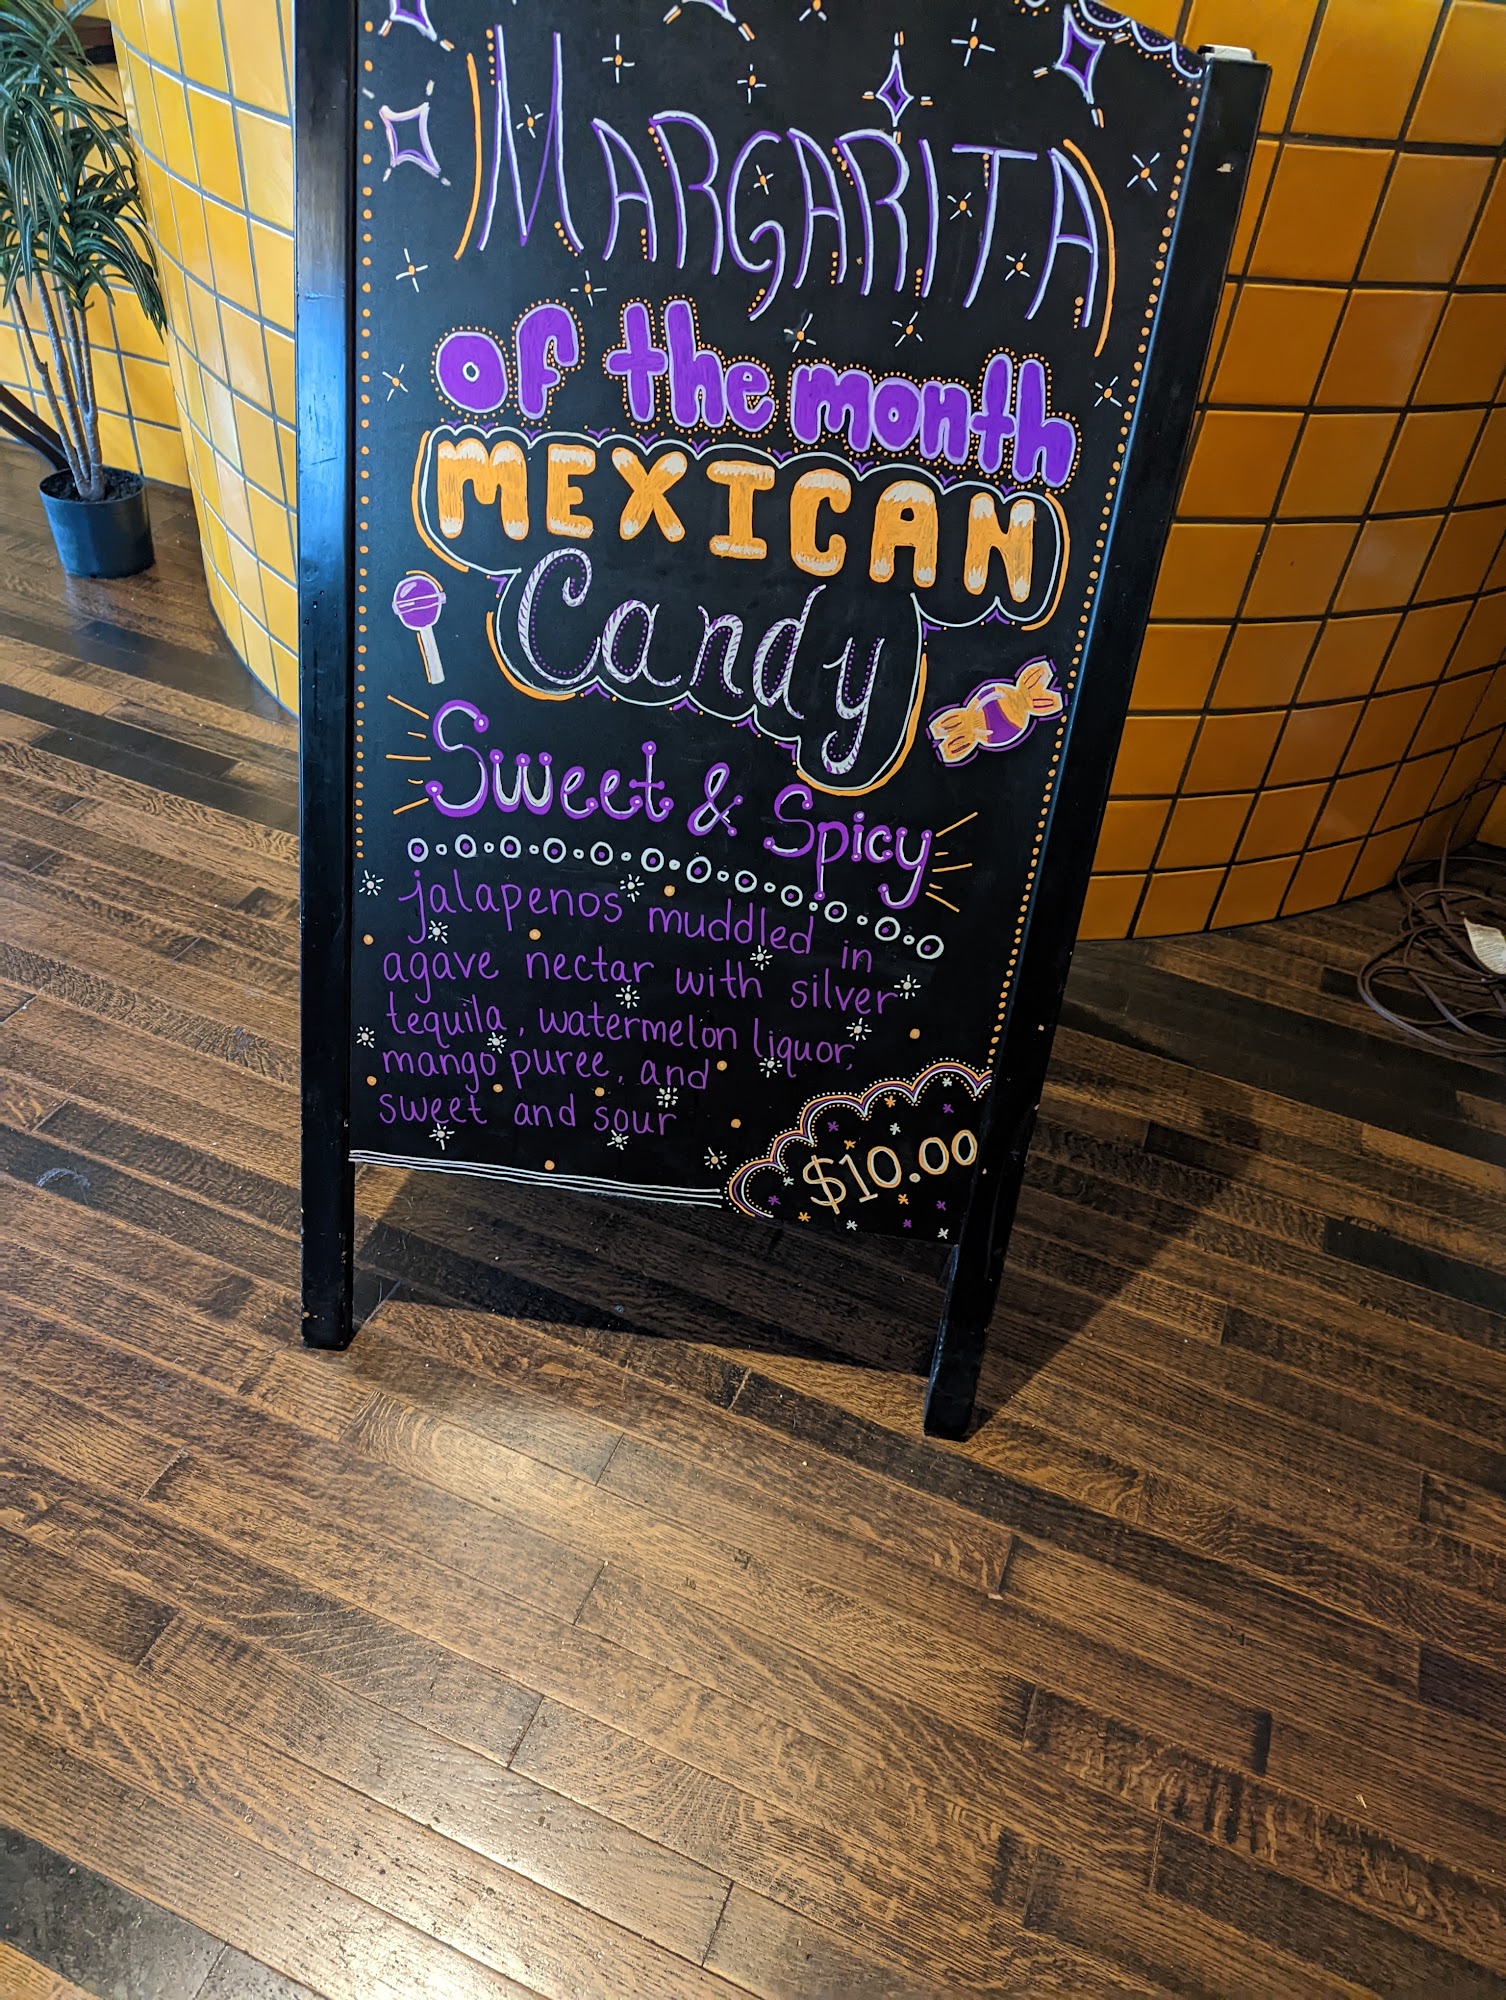 MARGARITA
of the month
MEXICAN
Candy
Sweet & Spicy
jalapenos muddled in
agave nectar with silver
tequila, watermelon liquor,
mango puree, and
sweet and sour
$10.00